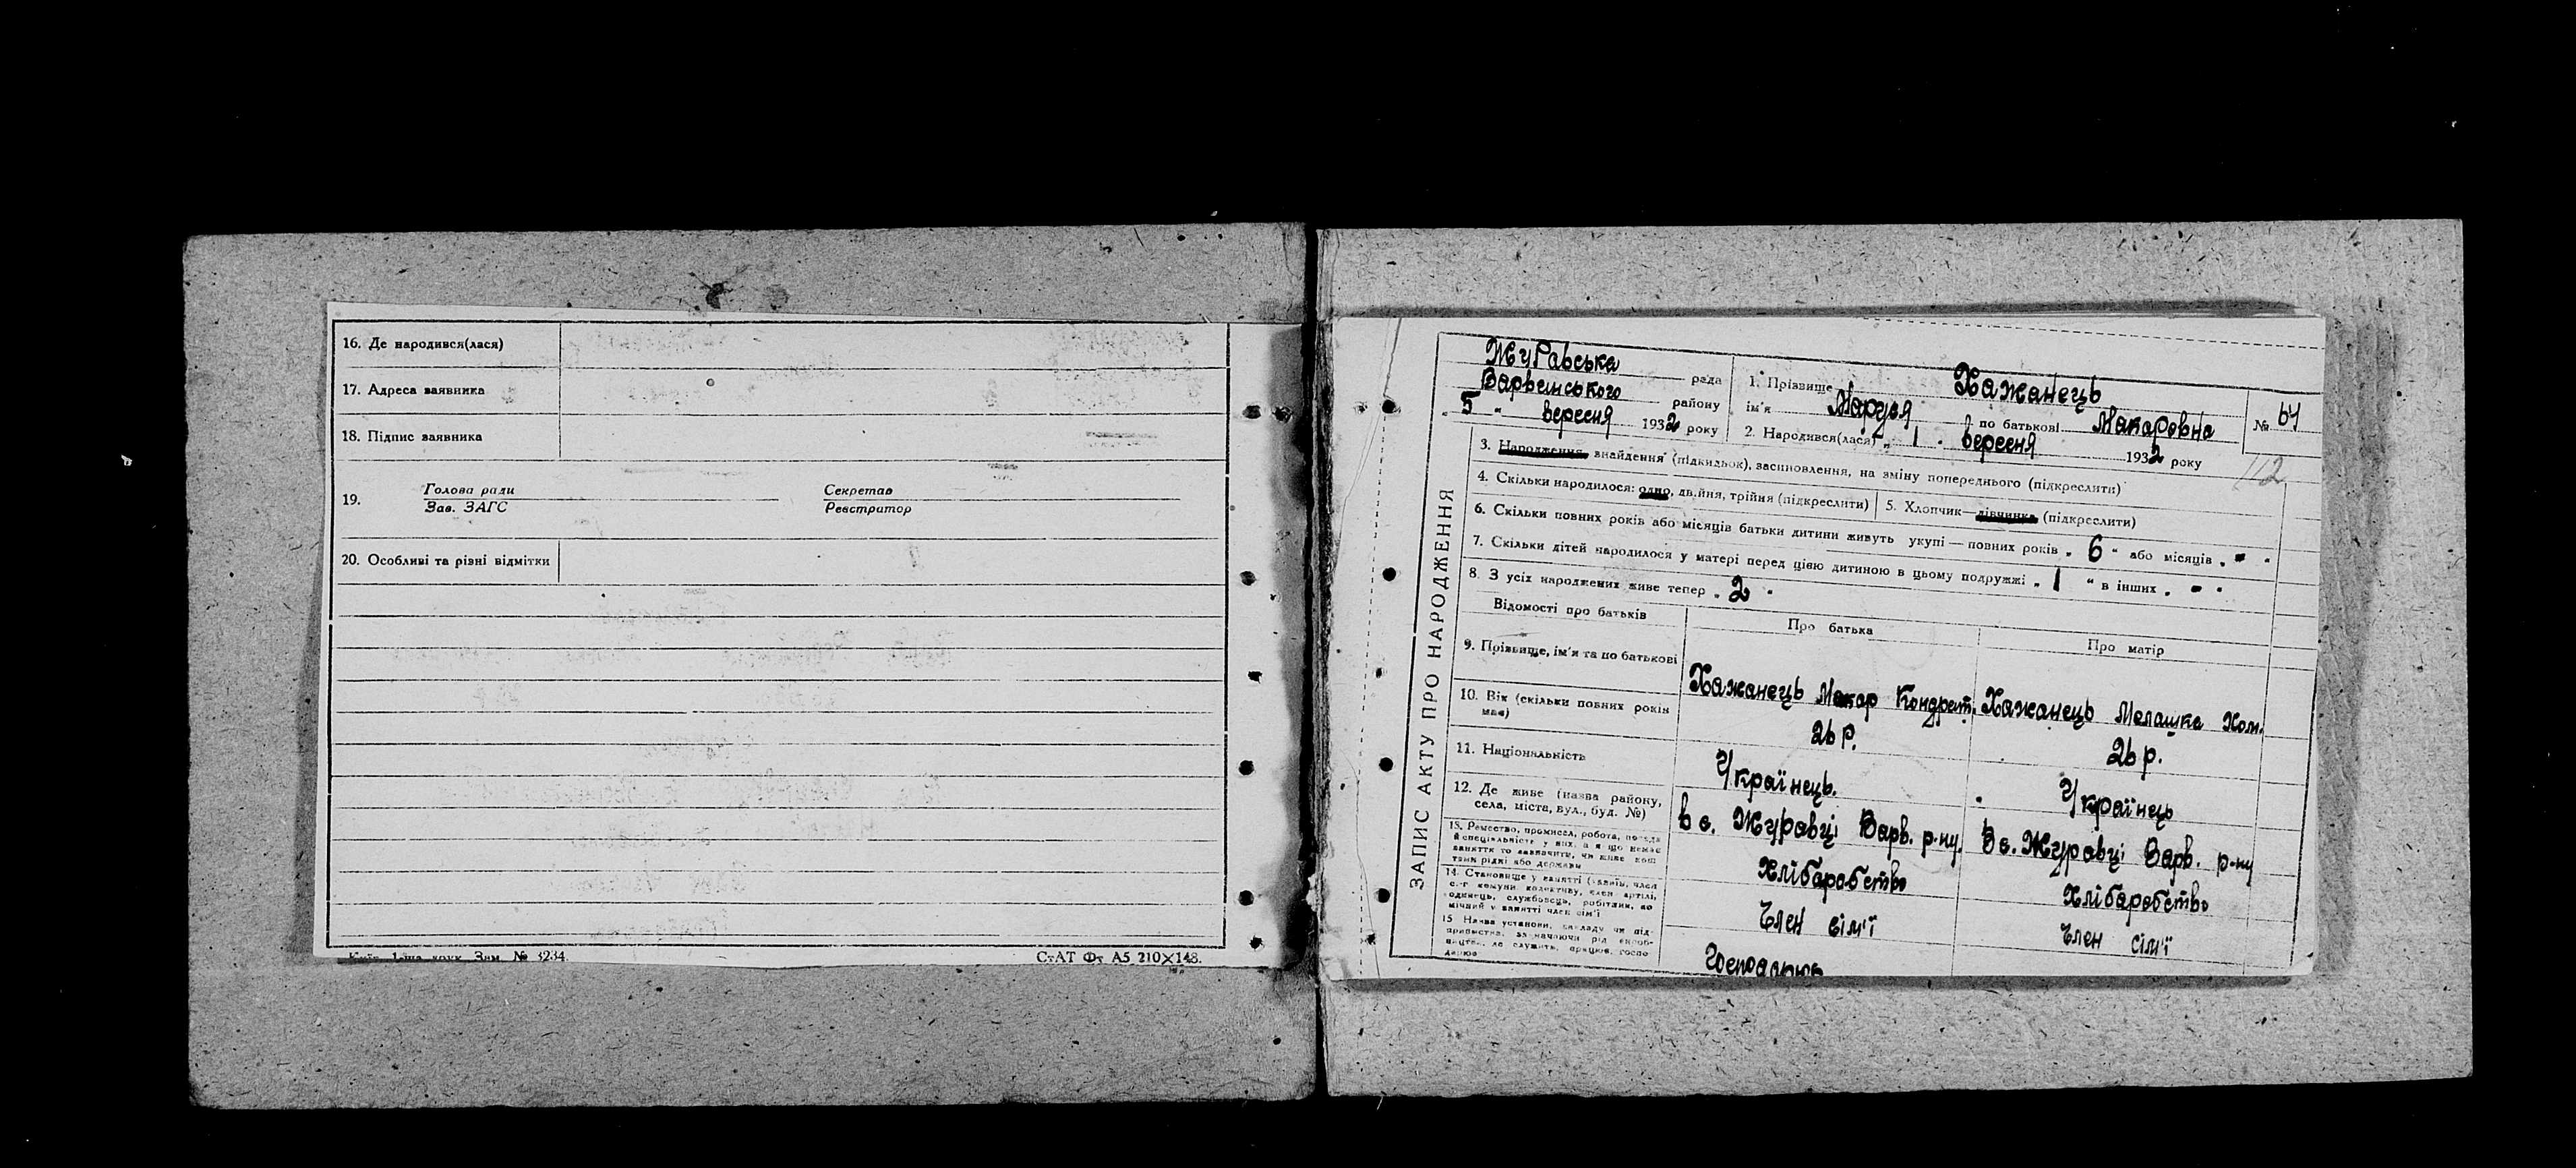 16. Де народився(лася)
17. Адреса заявника
18. Підпис заявника
19. Голова ради Секретар
Зав. ЗАГС Реєстратор
20. Особливі та різні відмітки
Київ, 1-ша друк. Зам. № 3234. СтАТ Фт А5 210×148.
ЗАПИС АКТУ ПРО НАРОДЖЕННЯ
Журавська рада
Варвенського району
„ 5 “ вересня 1932 року
1. Прізвище Хажанець
ім'я Маруся по батькові Макаровна
2. Народився(лася) „ 1 “ вересня 1932 року
№ 64
112
3. Народження, знайдення (підкидьок), засиновлення, на зміну попереднього (підкреслити)
4. Скільки народилося: одно, двійня, трійня (підкреслити) 5. Хлопчик—дівчинка (підкреслити)
6. Скільки повних років або місяців батьки дитини живуть укупі — повних років „ 6 “ або місяців „ - “
7. Скільки дітей народилося у матері перед цією дитиною в цьому подружжі „ 1 “ в інших „ - “
8. З усіх народжених живе тепер „ 2 “
Відомості про батьків Про батька Про матір
9. Прізвище, ім'я та по батькові Хажанець Макар Кондрат. Хажанець Мелашка Хом.
10. Вік (скільки повних років має) 26 р. 26 р.
11. Національність Українець. Українець
12. Де живе (назва району,
села, міста, вул., буд. №) в с. Журавці Варв. р-ну. В с. Журавці Варв. р-ну
13. Ремество, промисел, робота, посада
й спеціяльність у них, а якщо немає
заняття то зазначити, чи живе кош
тами рідні або держави Хлібаробство Хлібаробство
14. Становище у занятті (хазяїн, член
с.-г комуни колективу, член артілі,
одинець, службовець, робітник, до
мічний у занятті член сім'ї Член сім'ї Член сім'ї
15 Назва установи, закладу чи під-
приємства, зазначаючи рід вироб-
ництва, де служить, працює, госпо
дарює Господарює